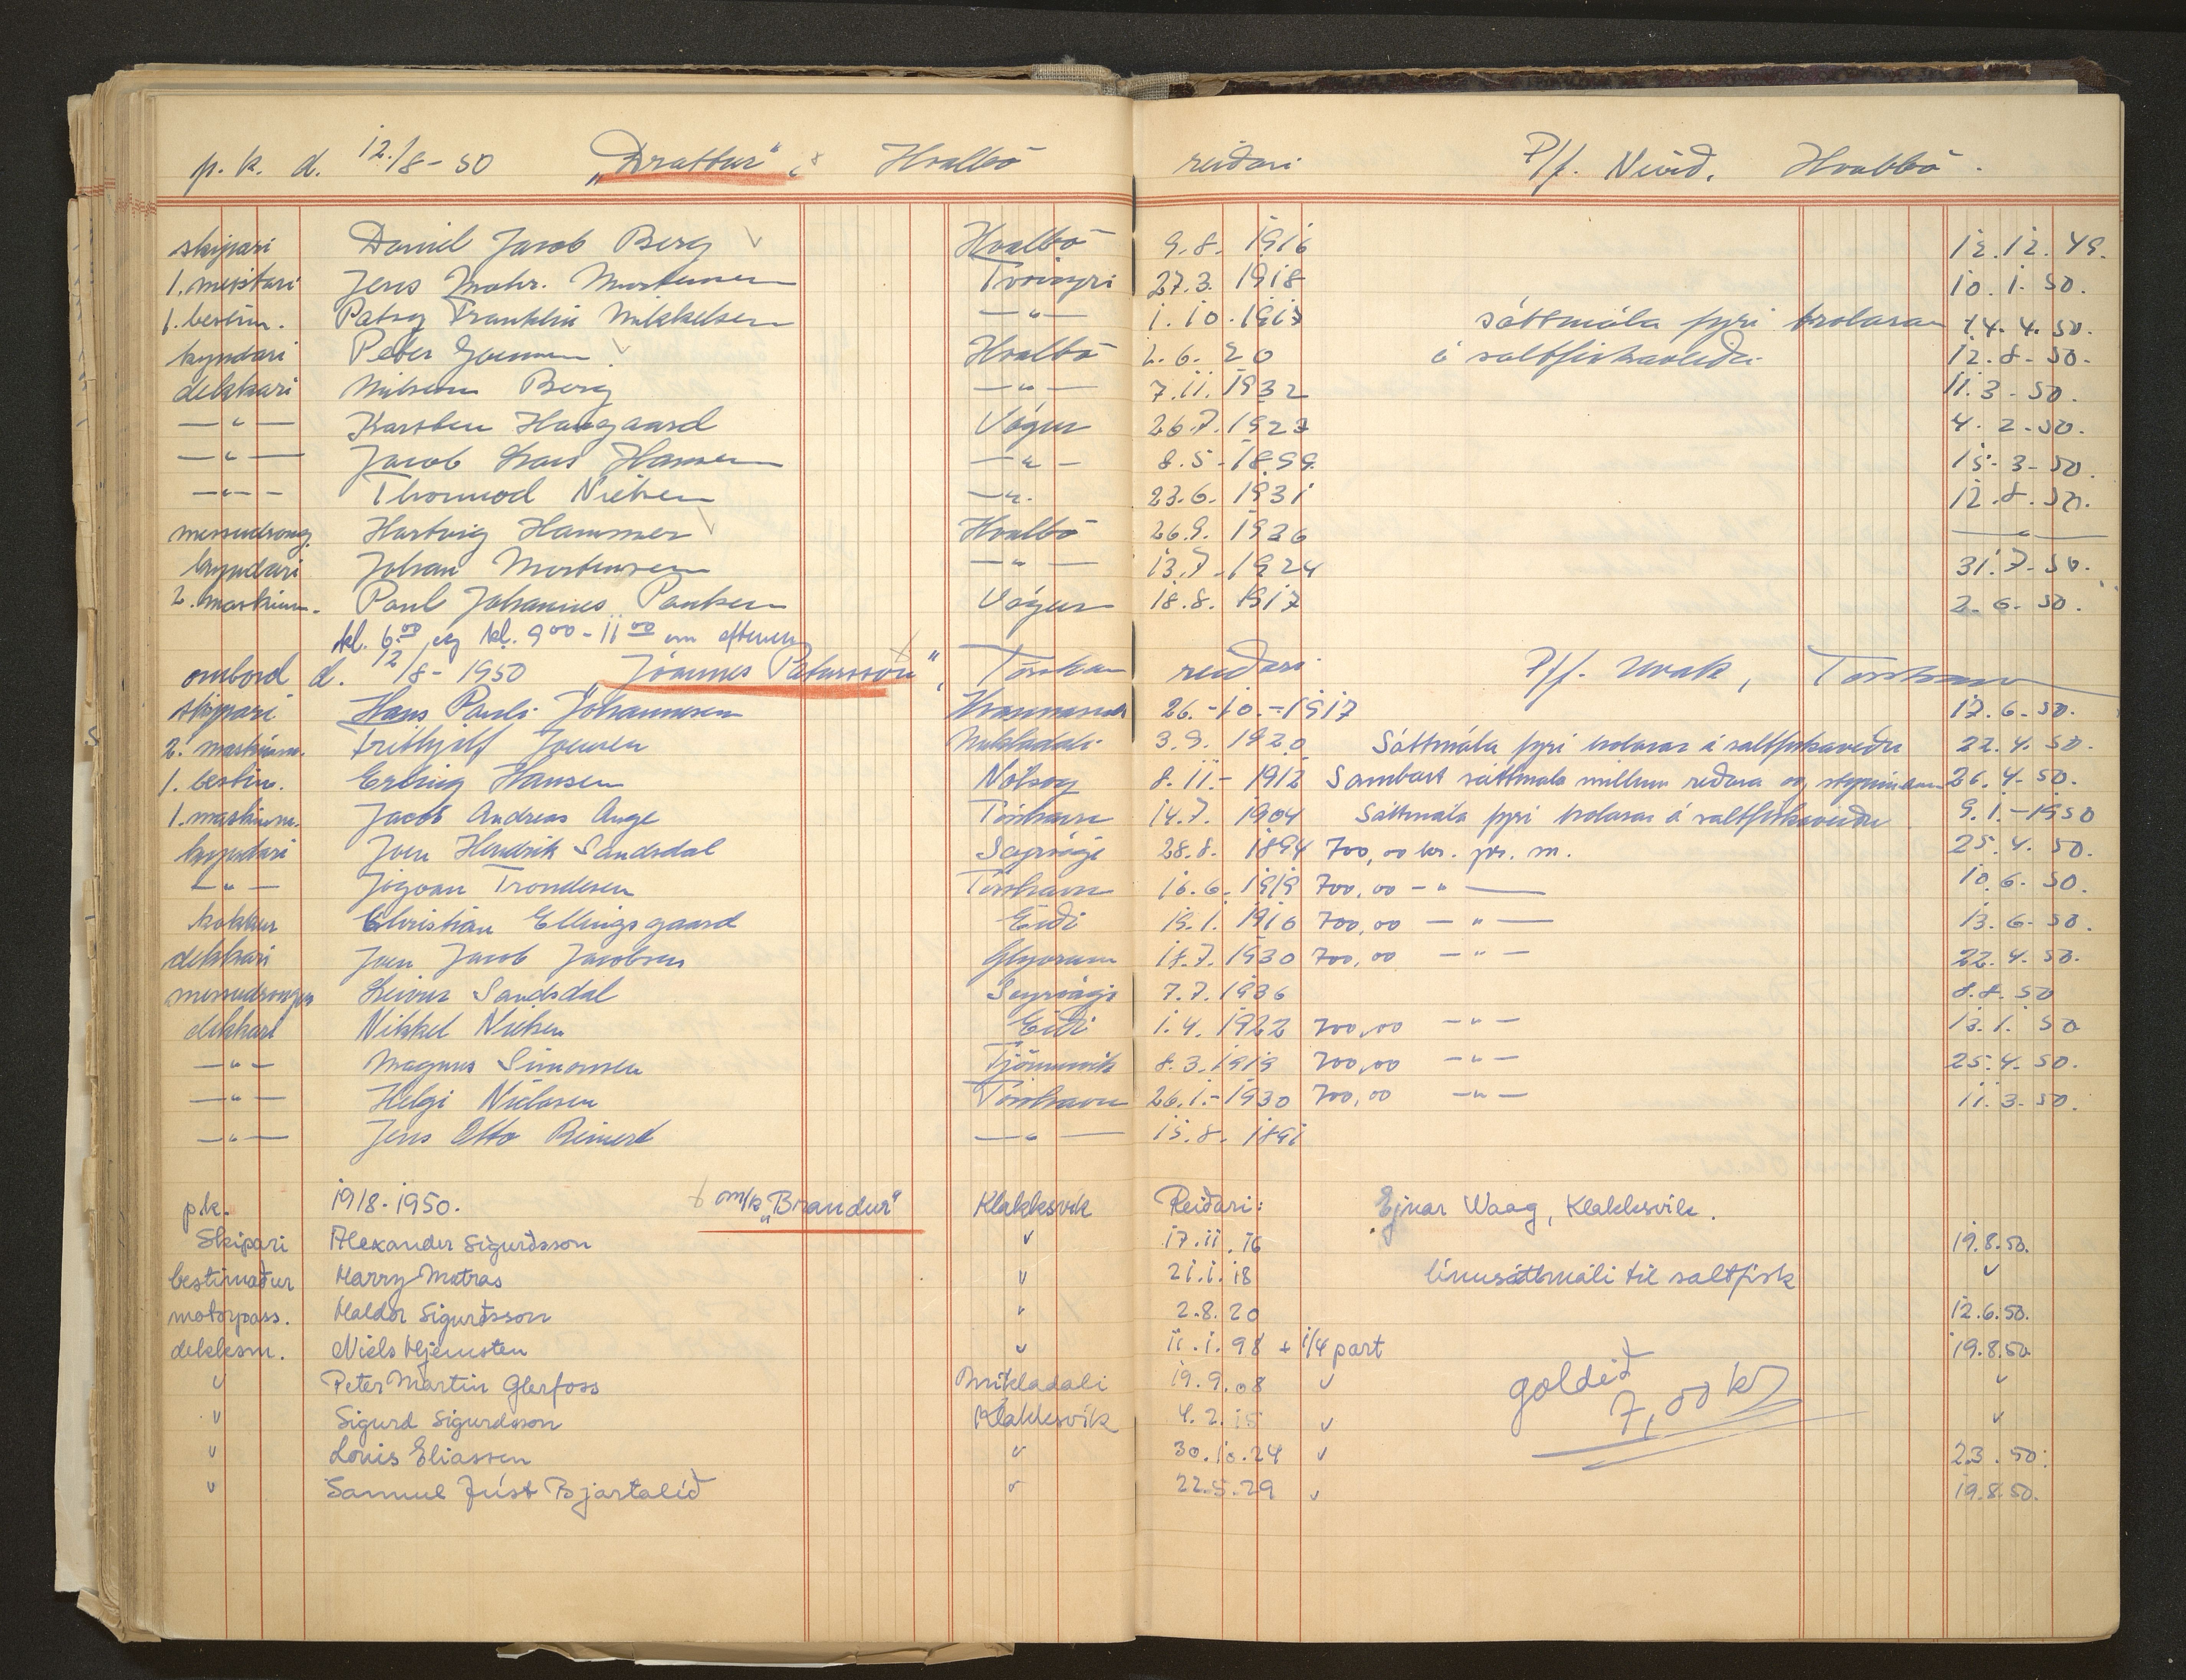 p. k. d. 12./8 - 50 „Brattur“, Hvalbö reiðari P/f. Nevið. Hvalbö.
skipari Daniel Jacob Berg Hvalbö 9.8. 1916 12.12.49.
1. meistari Jens Mohr. Mortensen Tvöroyri 27.3. 1918 10.1.50.
1. bestim. Patsy Franklin Mikkelsen —"— 1.10.1913 sáttmála fyri trolarar 14.4.50.
kyndari Peter Joensen Hvalbö 2.6.20 á saltfiskaveiðu 12.8-50.
dekkari Berg —"— 7.11.1932 11.3-50.
—"— Karsten Haugaard Vágur 26.7.1923 4.2-50.
—"— Jacob Hansen —"— 8.5-1899 15-3-50.
—"— Thormod Nielsen —"— 23.6.1931 12.8.50.
messudrong. Hartvig Hammer Hvalbö 26.9.1936 —"—
kyndari Johan Mortensen —"— 13.7.1924 31.7-50.
2. maskinm. Poul Johannes Poulsen Vágur 18.8.1917 2-6-50.
kl. 6.00 og kl. 9 00 - 11 00 um aftenen
ombord d. 12/8 - 1950 „Jóannes Patursson“, Tórshavn reiðari P/f. Tórshavn
skipari Hans Pauli Johannesen Kvannasund 26.-10.-1917 17.6.50.
2. maskinm. Frithjolf Joensen Mikladali 3.9.1920 Sáttmála fyri trolarar á saltfiskaveiðu 22.4.50.
1. bestim. Erling Hansen Nólsoy 8.11.-1912 Sambært sáttmála millum reiðara og 26.4.50.
1. maskinm. Jacob Andreas Ange Tórshavn 14.7.1904 Sáttmála fyri trolarar á saltfiskaveiðu 9.1.-1950
kyndari Joen Hendrik Sandsdal Sörvági 28.8.1894 700,00 kr. pr. m. 25.4.50.
—"— Jógvan Trondesen Tórshavn 16.6.1919 700,00 —"— 10.6.50.
kokkur Christian Ellingsgaard Eiði 19.1.1910 700,00 —"— 13.6-50.
dekkari Joen Jacob Jacobsen Glyvrum 18.7.1930 700,00 —"— 22.4.50.
messudrongur Leivur Sandsdal Sörvági 7.7.1936 8.8.50
dekkari Nikkel Nielsen Eiði 1.4.1922 700,00 —"— 13.1.50
—"— Magnus Simonsen Tjörnuvík 8.3.1919 700,00 —"— 25.4.50.
—"— Helgi Nielsen Tórshavn 26.1.-1930 700,00 —"— 11.3.50.
—"— Jens Otto Reinert —"— 15.8.1891
pk. 19/8-1950. m/k „Brandur“ Klakksvík Reiðari: Ejnar Waag, Klakksvík.
Skipari Alexander Sigurðsson " 17.11.16 19.8.50.
bestimaður Harry Matras " 21.1.18 línusáttmáli til saltfisk "
motorpass. Haldor Sigurðsson " 2.8.20 12.6.50.
dekksm. Niels Hjemsten " 11.1.98 + 1/4 part 19.8.50.
" Peter Martin Glerfoss Mikladali 19.9.08 " goldið "
" Sigurd Sigurdsson Klakksvík 4.2.15 " 7,00 kr "
" Louis Eliassen " 30.10.24 " 2.3.50.
" Samuel Júst Bjartalíð " 22.5.29 " 19.8.50.